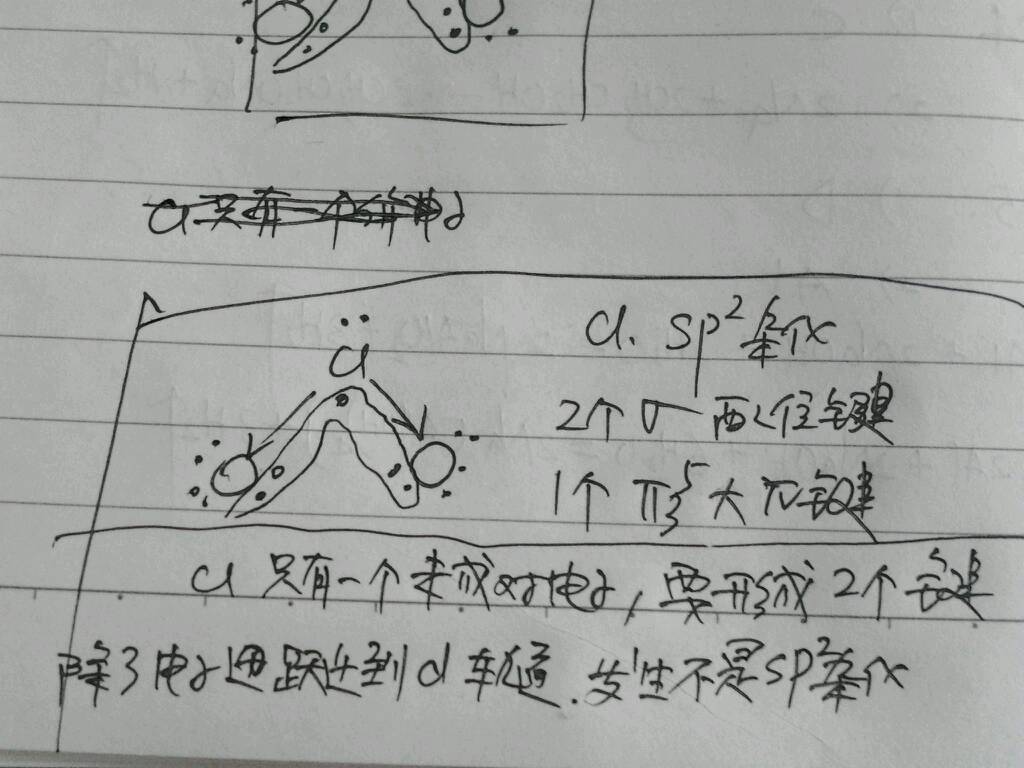 Cl 只有一个
Cl
Cl. sp² 杂化
2个 σ 配位键
1个 π₃⁵ 大π键
Cl 只有一个未成对电子，要形成 2个 键
除了电子跃迁到 d 轨道. 发生不是SP²杂化